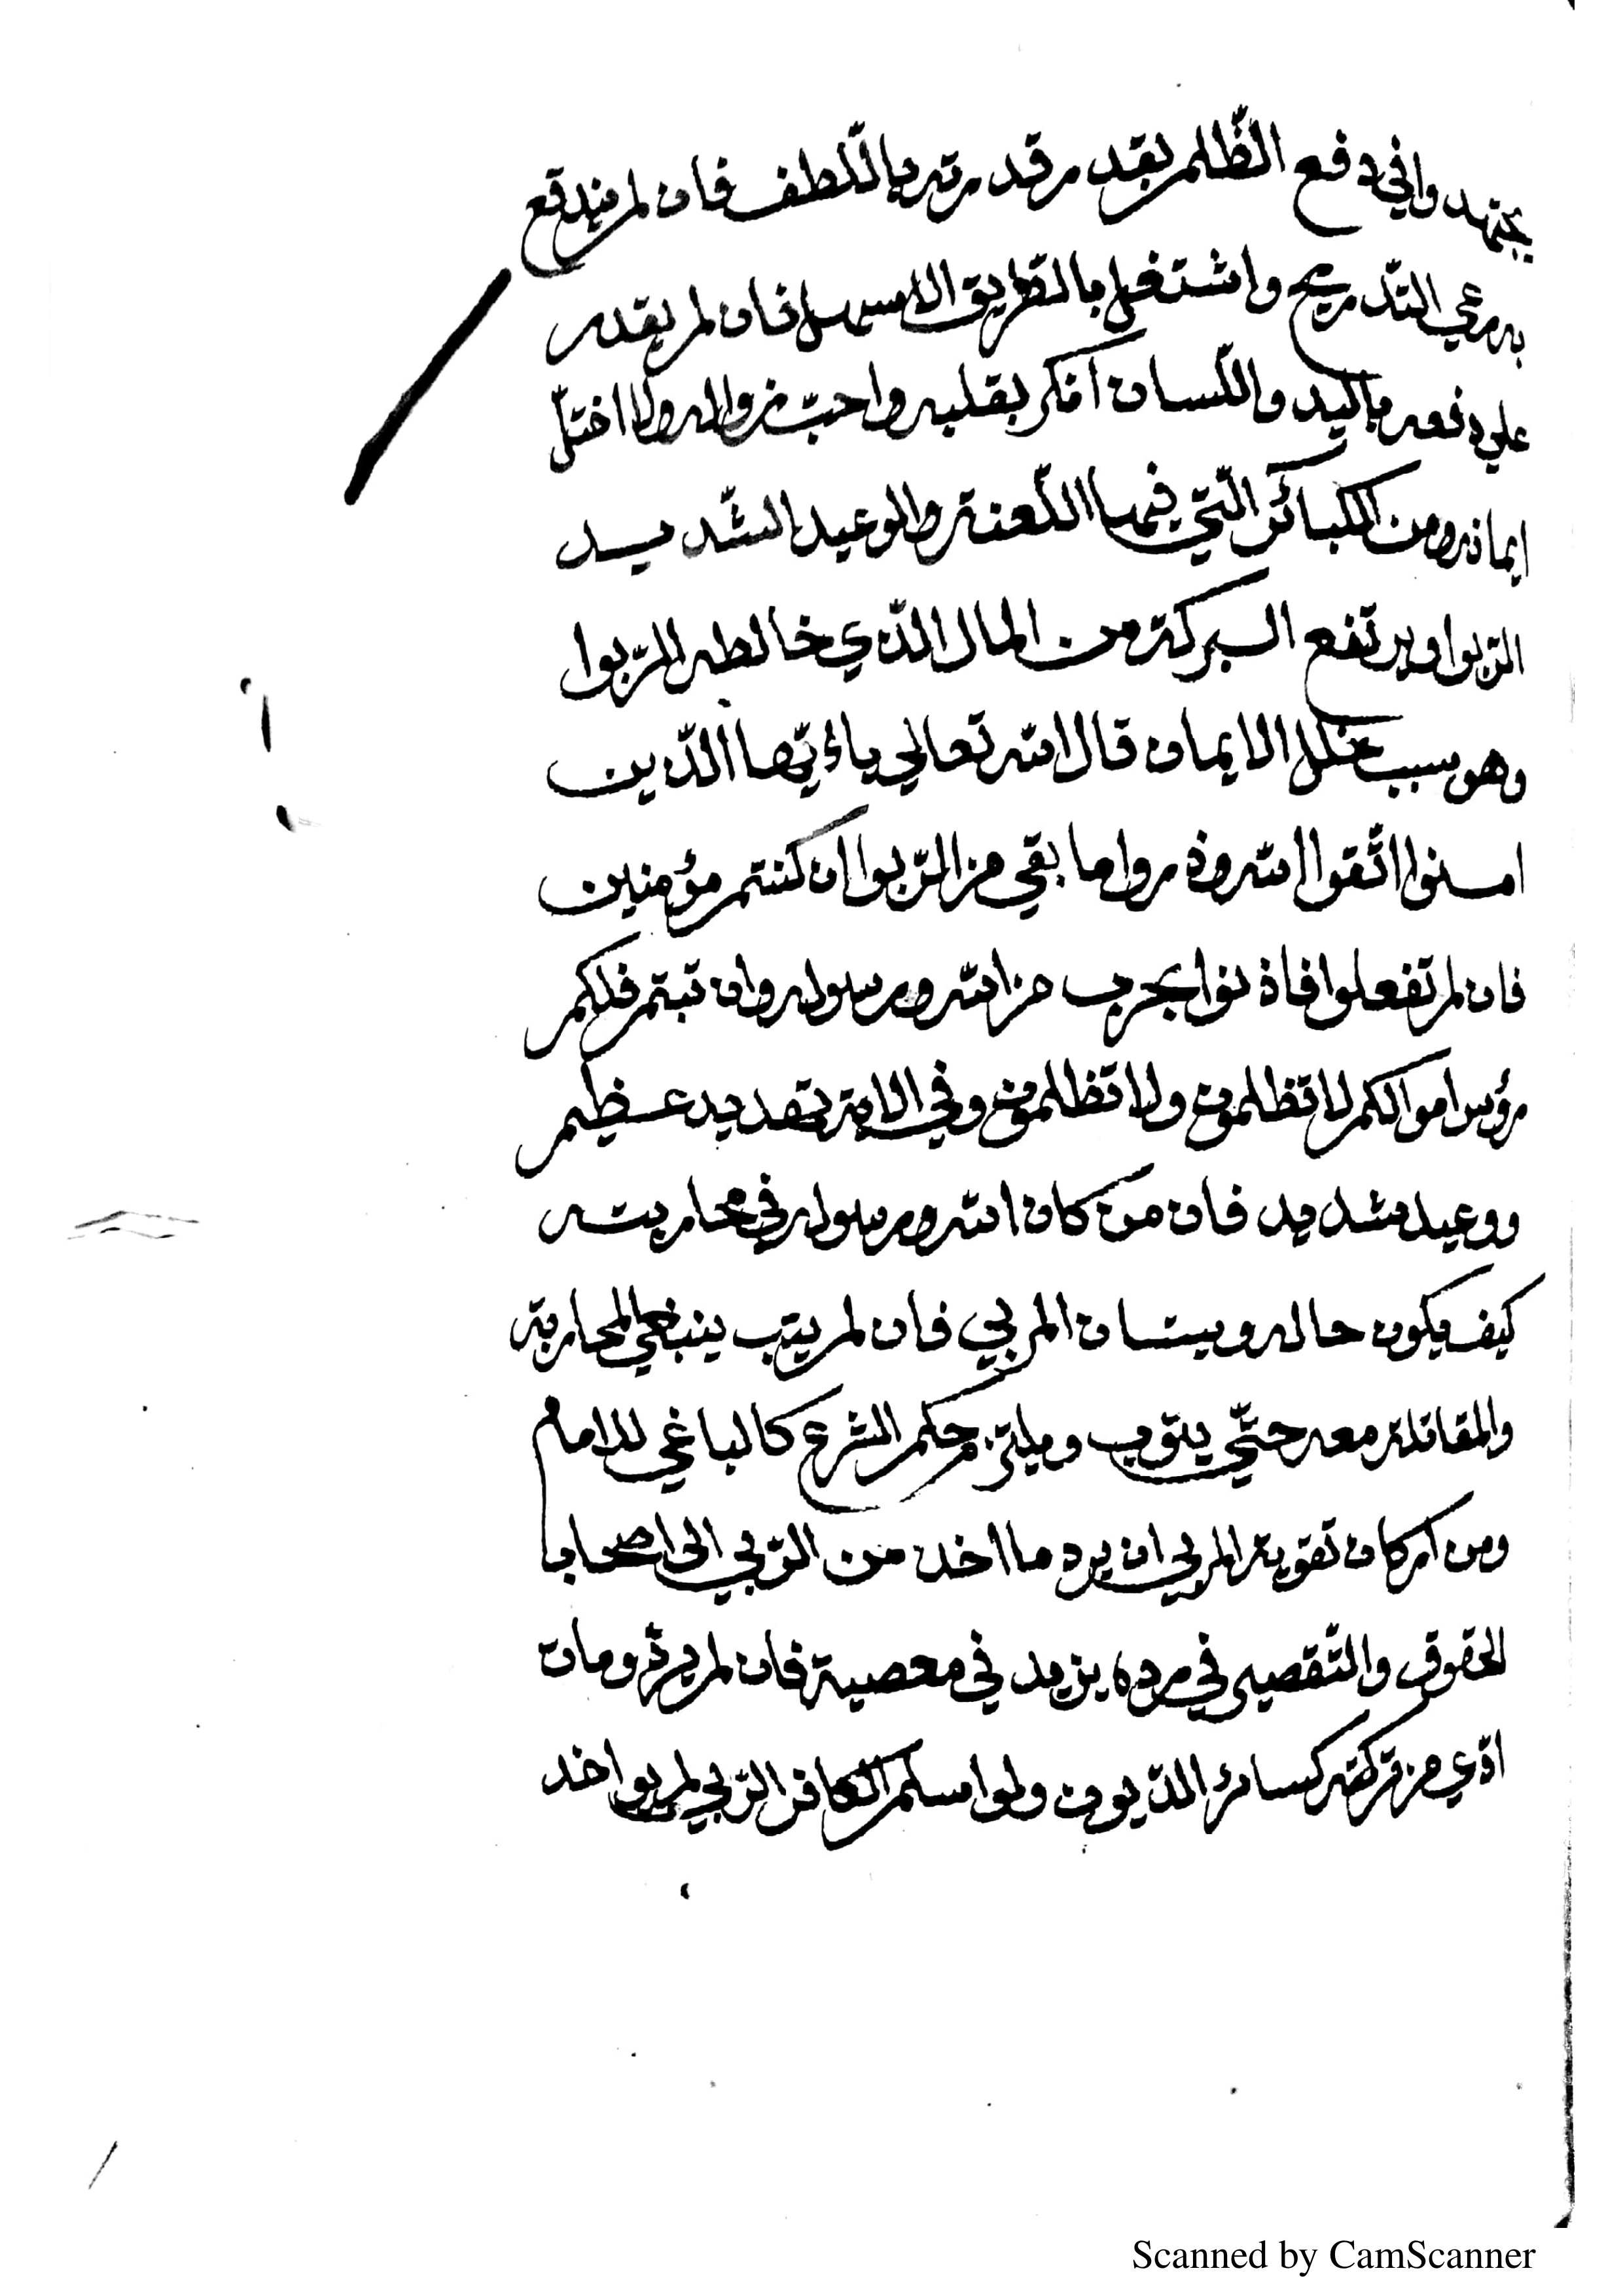 يجتهد وا في دفع الظّلم بقدر قدرته باللّطف فان لم يندفع
به رعي التّدريج واشتغل بالطّريق الاسهل فان لم يقدر
علي دفعه باليد واللّسان انكر بقلبه واحبّ زواله والا اختلّ
ايمانه ومن الكبائر الّتي فيها اللّعنة والوعيد الشّديد
الرّبوا ويرتفع البركة من المال الّذي خالطه الرّبوا
وهو سبب خلل الايمان قال الله تعالي ياءيّها الّذين
امنوا اتّقوا الله وذروا ما بقي من الرّبوا ان كنتم مؤمنين
فان لم تفعلوا فاذنوا بحرب من الله ورسوله وان تبتم فلكم
رؤس اموالكم لا تظلمون ولا تظلمون وفي الاية تهديد عظيم
ووعيد شديد فان من كان الله ورسوله في محاربته
كيف يكون حاله ويتسان المربي فان لم يتب ينبغي المحاربة
والمقاتلة معه حتّي يتوب ويلتزم حكم الشرع كالباغي للامام
ومن اركان تقوية المربي ان يرد ما اخد من الرّبي الى اصحابا
لحقوق والتّقصير في رده يزيد في معصية فان لم يردّ ومات
ادّي من تركته كسائر الدّيون ولوا سلم الكافر الرّبي لم يواخد
Scanned by CamScanner